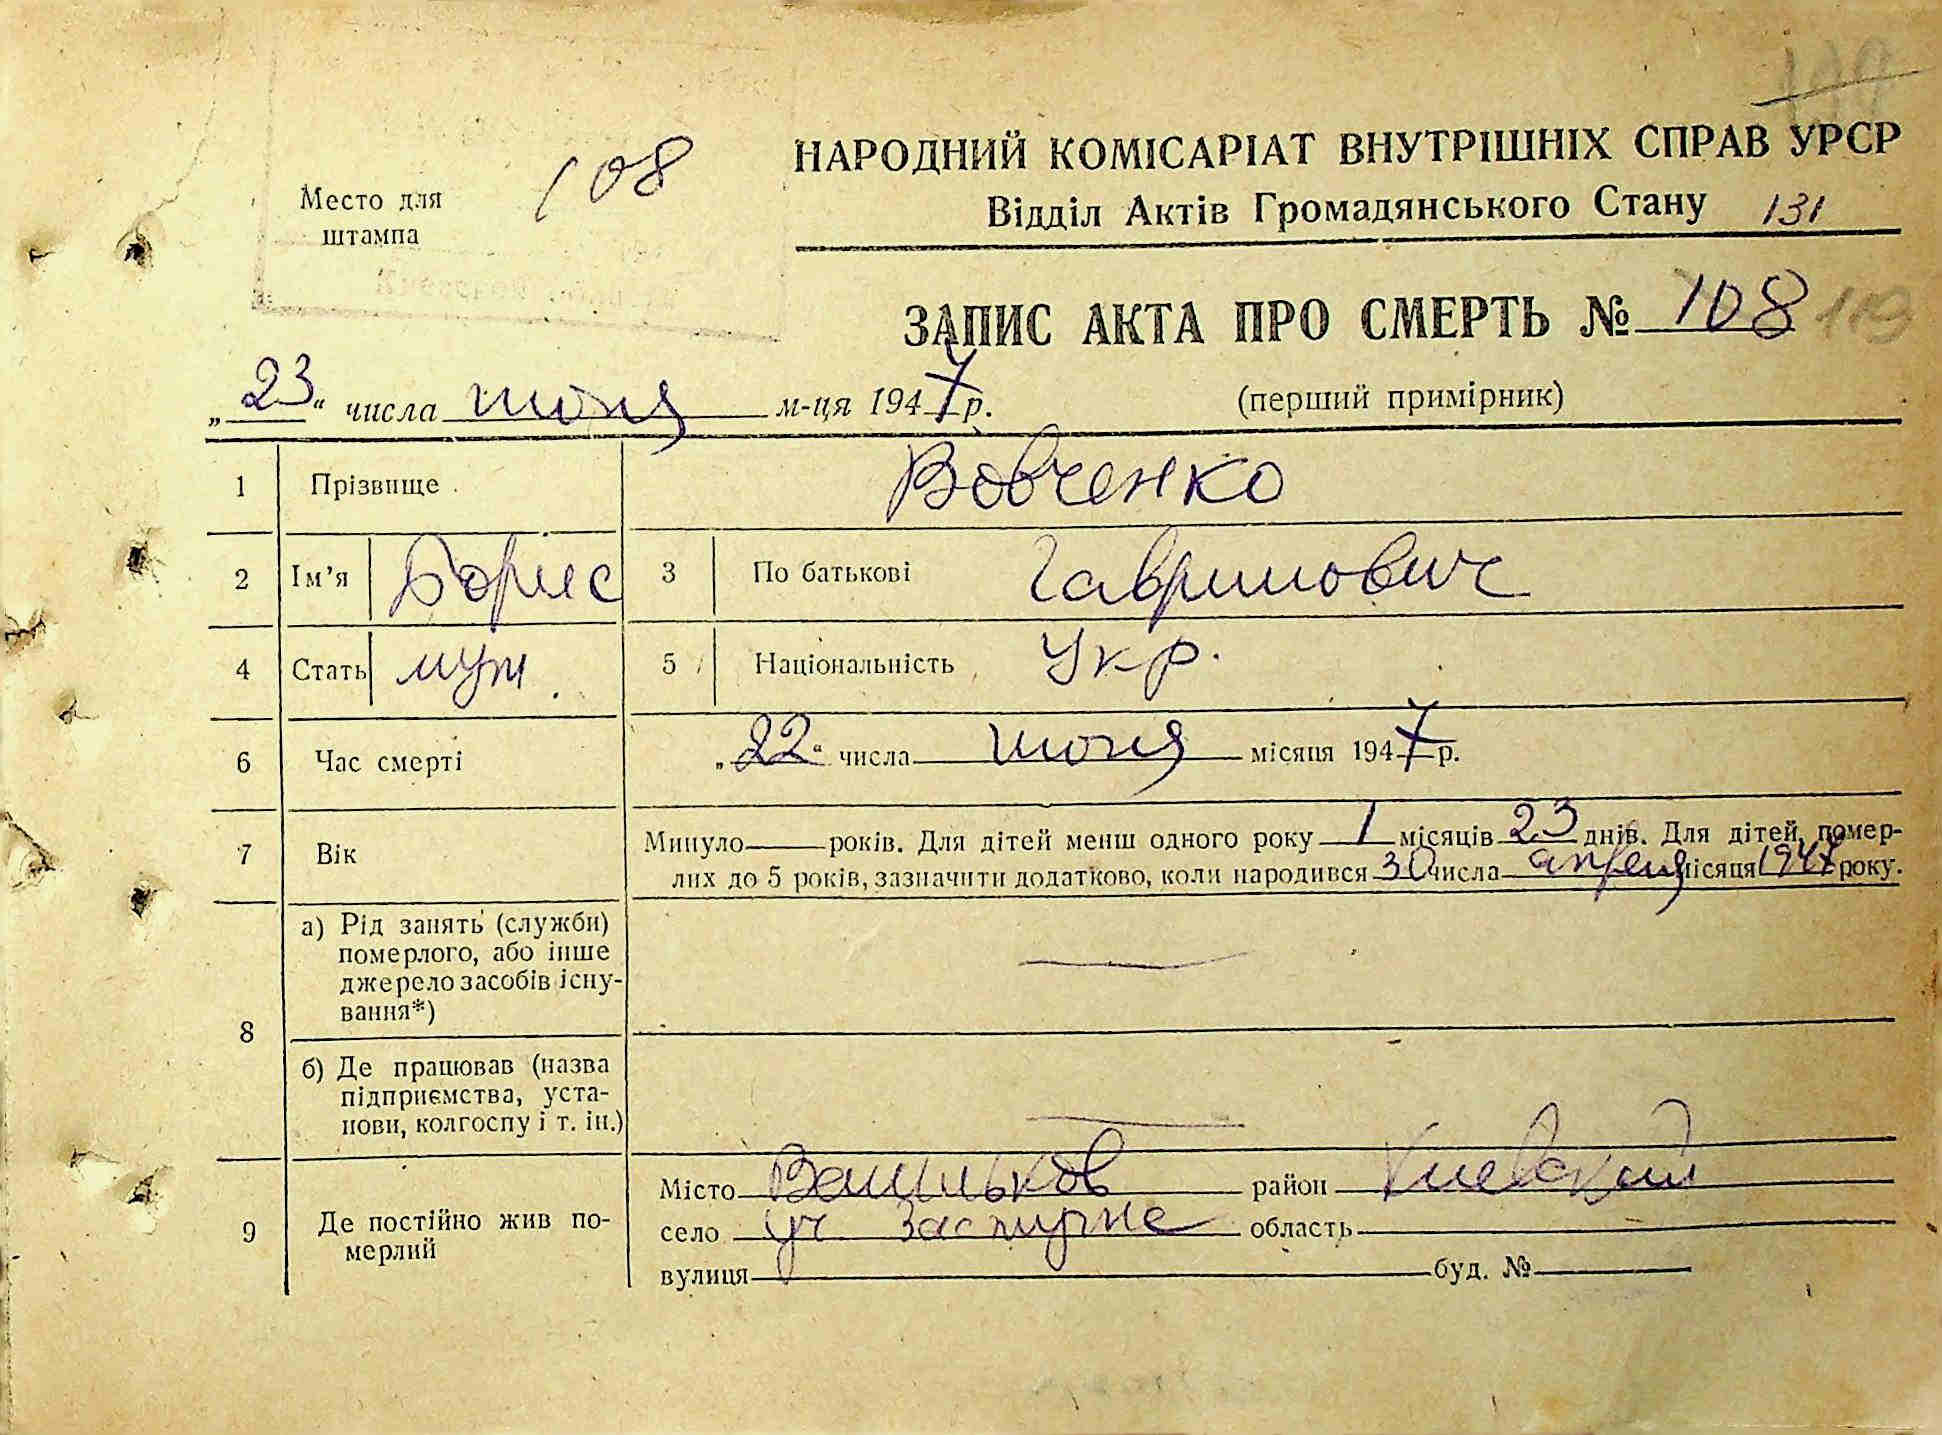 119
НАРОДНИЙ КОМІСАРІАТ ВНУТРІШНІХ СПРАВ УРСР
Место для штампа
108
Відділ Актів Громадянського Стану 131
ЗАПИС АКТА ПРО СМЕРТЬ № 108 119
„23“ числа июня м-ця 1947 р. (перший примірник)
1 Прізвище Вовченко
2 Ім’я Борис 3 По батькові Гаврилович
4 Стать муж 5 Національність Укр.
6 Час смерті „22“ числа июня місяця 1947 р.
7 Вік Минуло — років. Для дітей менш одного року 1 місяців 23 днів. Для дітей, помер-
лих до 5 років, зазначити додатково, коли народився 30 числа апреля місяця 1947 року.
8 а) Рід занять (служби)
померлого, або інше
джерело засобів існу-
вання*)
б) Де працював (назва
підприємства, уста-
нови, колгоспу і т. ін.)
9 Де постійно жив по-
мерлий
Місто Васильков район Киевский
село область
вулиця буд. №